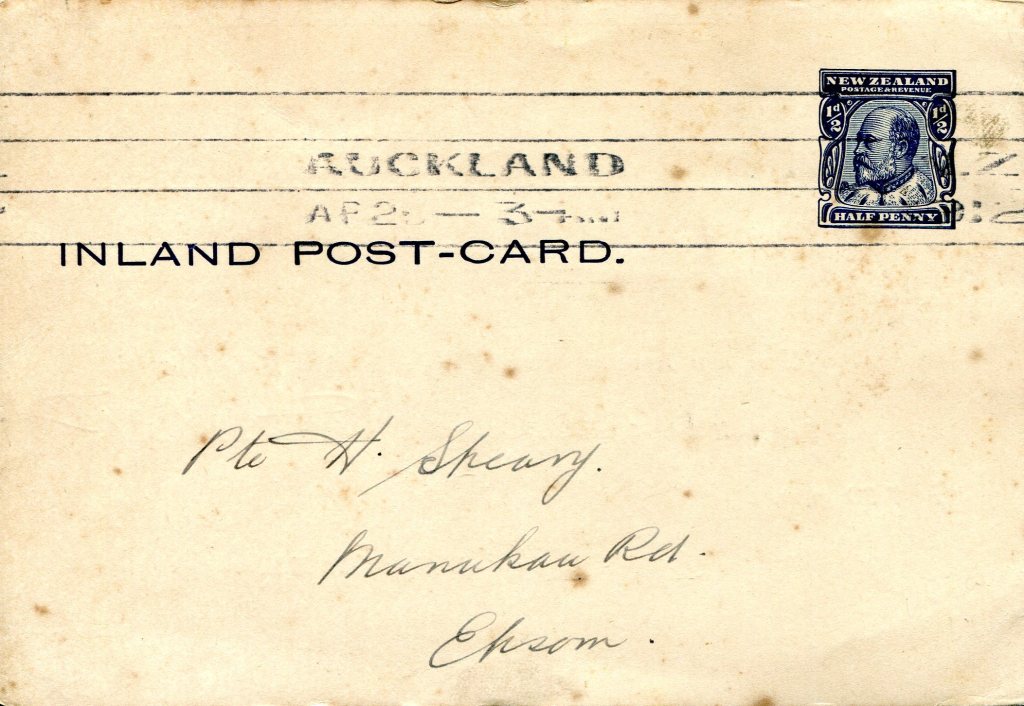 NEW ZEALAND
POSTAGE & REVENUE
½d ½d
HALF PENNY
AUCKLAND
INLAND POST-CARD.
Pte H. Speary.
Manukau Rd.
Epsom.